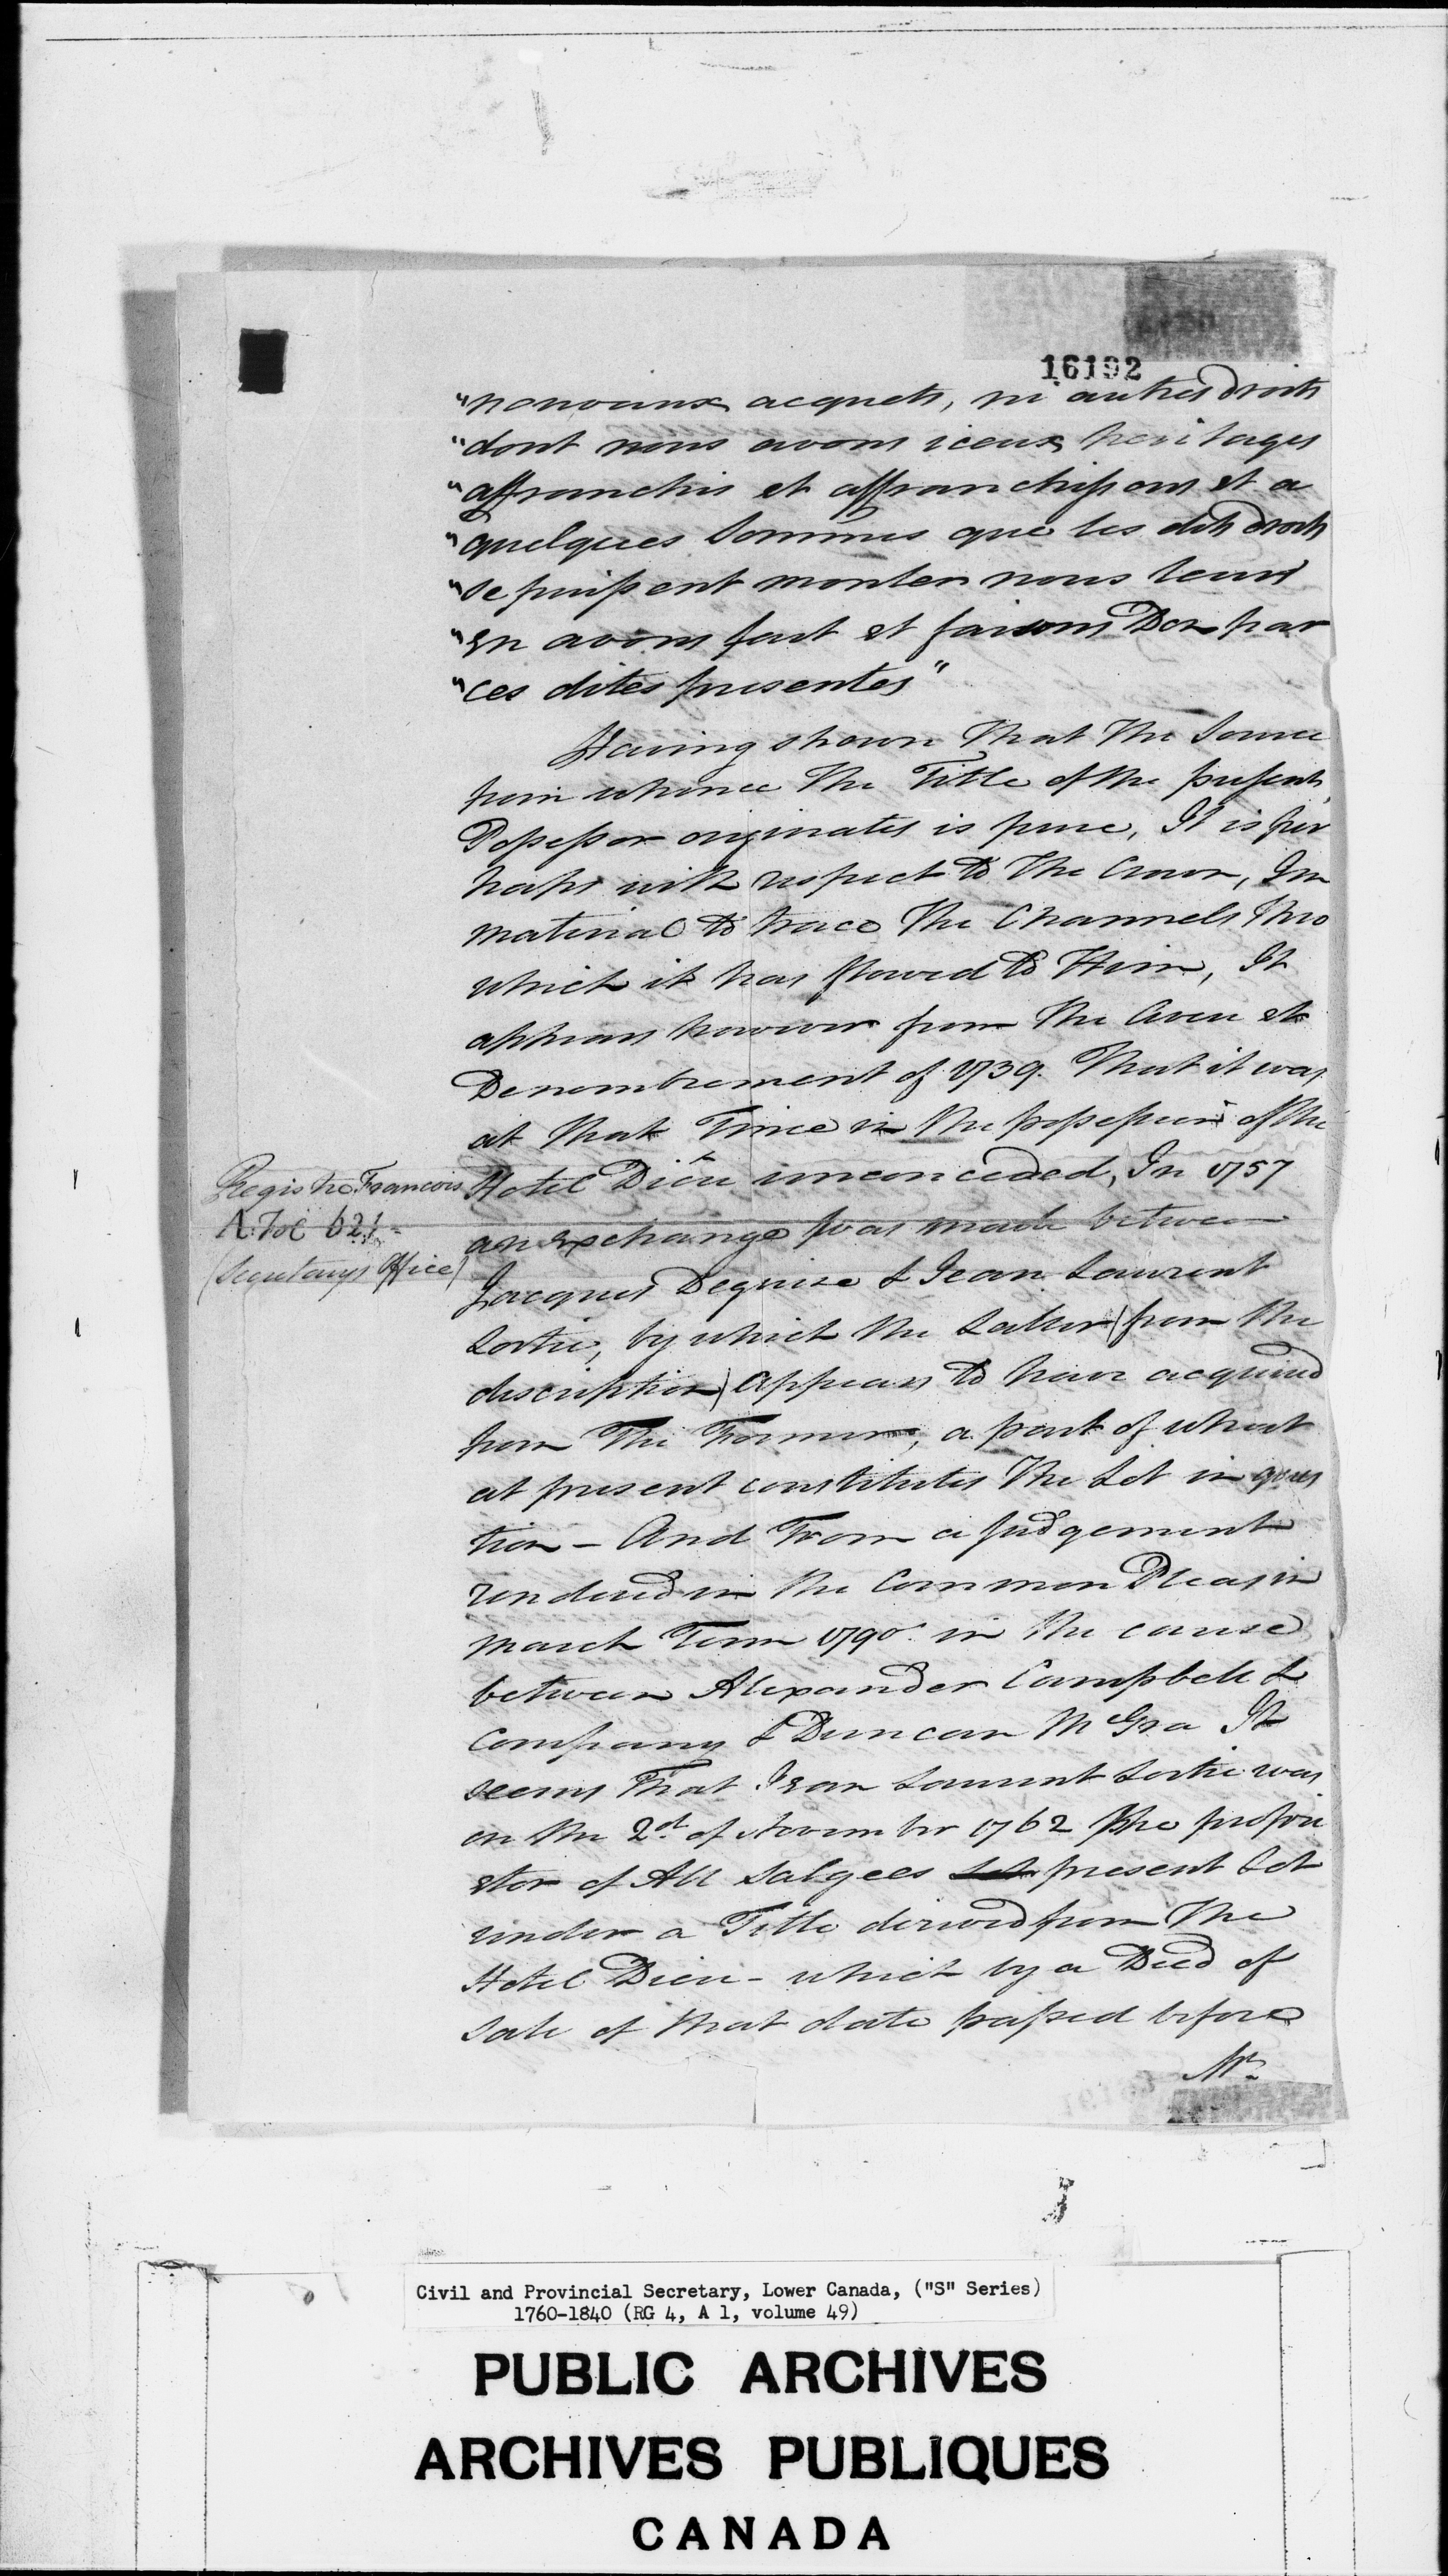 16192
"nouveaux acquets, ni autres droits
"dont nous avons iceux heritages
"affranchis et affranchissons et a
"quelques Sommes que les dits droits
"se puissent monter nous leurs
"en avons fait et faisons Don par
"ces dites presentes"
Having shown That The Source
from whence The Title of the present
Possessor originates is pure, It is per
haps with respect to The Crown, Im
material to trace The Channels Thro
which it has flowed to Him, It
appears however from The Aveu et
Denombrement of 1739. That it was
at That Time in The possession of the
Registre Francois
A. Fol 621
(Secretarys Office)
Hotel Dieu unconceded, In 1757
an exchange was made between
Jacques Deguise & Jean Laurent
Lortie, by which the Latter (from the
description) appears to have acquired
from The Former, a part of what
at present constitutes The Lot in ques
tion - And From a judgement
rendered in the Common Pleas in
March Term 1790. in the cause
between Alexander Campbell &
Company & Duncan McGra It
seems That Jean Laurent Lortie was
on the 2d. of November 1762 The propri
etor of All Salgees Lot present Lot
under a Title derived from The
Hotel Dieu - which by a Deed of
Sale of that date passed before
Mr.
Civil and Provincial Secretary, Lower Canada, ("S" Series)
1760-1840 (RG 4, A 1, volume 49)
PUBLIC ARCHIVES
ARCHIVES PUBLIQUES
CANADA